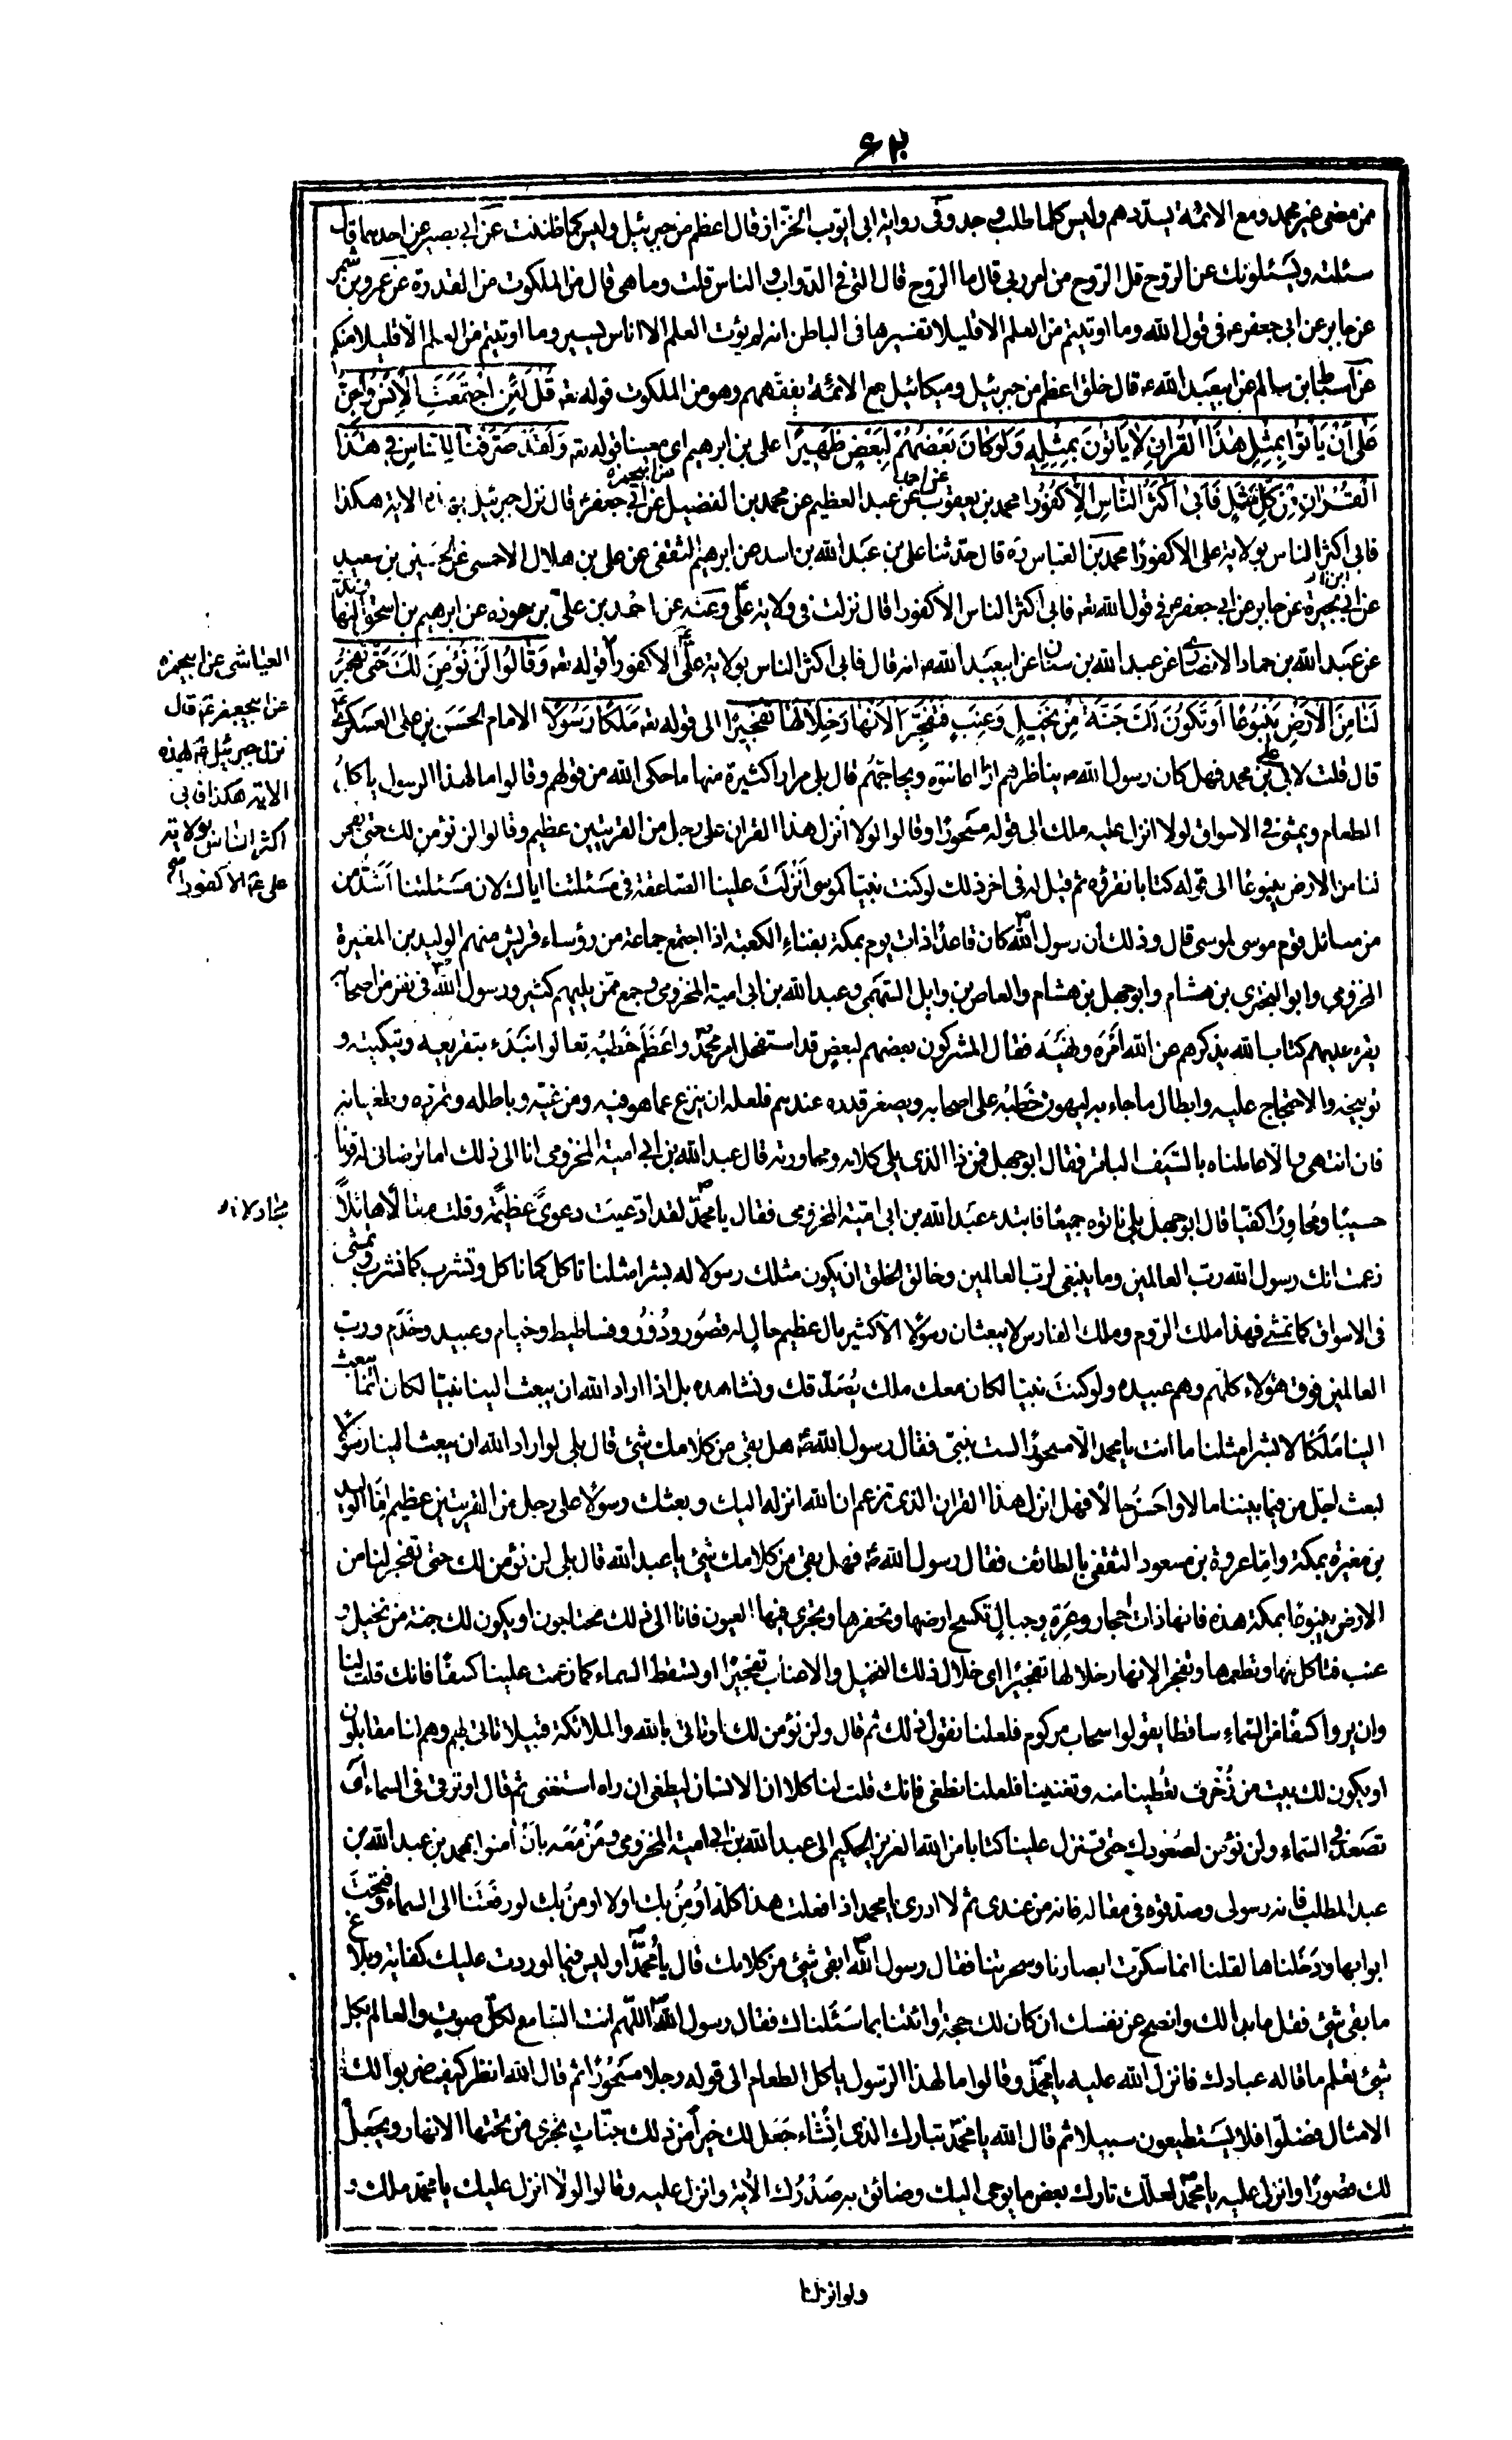 ٦٠٢
ممن مضى غير محمد ومع الائمة يسددهم وليس كلما طلب وجد وفى رواية ابى ايوب الخزاز قال اعظم من جبرئيل وليس كما ظننت عن ابى بصير عن احدهما قال
سئلته ويسئلونك عن الروح قل الروح من امر ربى قال ما الروح قال التى فى الدواب والناس قلت وما هى قال من الملكوت من القدرة عن عمرو بن شمر
عن جابر عن ابى جعفر ع فى قول الله وما اوتيتم من العلم الا قليلا تفسيرها فى الباطن انه لم يؤت العلم الا اناس يسير وما اوتيتم من العلم الا قليلا منكم
عن اسباط ابن سالم عن ابيعبد الله ع قال خلق اعظم من جبرئيل وميكائيل مع الائمة يفقههم وهو من الملكوت قوله تعه قُلْ لَئِنِ اجْتَمَعَتِ الْاِنْسُ وَالْجِنُّ
عَلى اَنْ يَأْتُوا بِمِثْلِ هٰذَا الْقُرانِ لا يَأْتُونَ بِمِثْلِهِ وَلَوْ كانَ بَعْضُهُمْ لِبَعْضٍ ظَهِيرًا على بن ابرهيم اى معينا قوله تعه وَلَقَدْ صَرَّفْنا لِلنّاسِ فى هٰذَا
الْقُرْانِ مِنْ كُلِّ مَثَلٍ فَاَبى اَكْثَرُ النّاسِ اِلّا كُفُورًا محمد بن يعقوب عن احمد عن عبد العظيم عن محمد بن الفضيل عن ابيحمزه عن ابى جعفر ع قال نزل جبرئيل بهذه الاية هكذا
فابى اكثر الناس بولاية على الا كفورا محمد بن العباس ره قال حدثنا على بن عبد الله بن اسد عن ابرهيم الثقفى عن على بن هلال الاحمسى عن الحسين بن سعيد
عن ابى بجيرة عن جابر عن ابى جعفر ع فى قول الله تعه فابى اكثر الناس الا كفورا قال نزلت فى ولاية على وعنه عن احمد بن على بن هوذه عن ابرهيم بن اسحق النهاوندى
عن عبد الله بن حماد الانصارى عن عبد الله بن سنان عن ابيعبد الله ع انه قال فابى اكثر الناس بولاية على ع الا كفورا قوله تعه وَقالُوا لَنْ نُؤْمِنَ لَكَ حَتّى تَفْجُرَ
لَنا مِنَ الْاَرْضِ يَنْبُوعًا اَوْ تَكُونَ لَكَ جَنَّةٌ مِنْ نَخِيلٍ وَعِنَبٍ فَتُفَجِّرَ الْاَنْهارَ خِلالَها تَفْجِيرًا الى قوله تعه مَلَكًا رَسُولًا الامام الحسن بن على العسكرى ع
قال قلت لابى على بن محمد فهل كان رسول الله ص يناظرهم اذا عانتوه ويحاجهم قال بلى مرارا كثيرة منها ما حكى الله من قولهم وقالوا ما لهذا الرسول ياكل
الطعام ويمشى فى الاسواق لولا انزل عليه ملك الى قوله مسحورا وقالوا لولا انزل هذا القران على رجل من القريتين عظيم وقالوا لن نؤمن لك حتى تفجر
لنا من الارض ينبوعا الى قوله كتابا نقرؤه ثم قيل له فى اخر ذلك لو كنت نبيا كموسى انزلت علينا الصاعقة فى مسئلتنا اياك لان مسئلتنا اشد من
من مسائل قوم موسى لموسى قال وذلك ان رسول الله ص كان قاعدا ذات يوم بمكة بفناء الكعبة اذا اجتمع جماعة من رؤساء قريش منهم الوليد بن المغيرة
المخزومى وابو البخترى بن هشام وابو جهل بن هشام والعاص بن وايل السهمى وعبد الله بن ابى امية المخزومى وجمع ممن يليهم كثير ورسول الله ص فى نفر من اصحابه
يقرء عليهم كتاب الله يذكرهم عن الله امره ونهيه فقال المشركون بعضهم لبعض قد استفحل امر محمد ص واعظم خطبه تعالوا نبتدء بتقريعه وتبكيته و
توبيخه والاحتجاج عليه وابطال ما جاء به ليهون خطبه على اصحابه ويصغر قدره عندهم فلعله ان ينزع عما هو فيه ومن غيه وباطله وتمرده وطغيانه
فان انتهى والا عاملناه بالسيف الباتر فقال ابو جهل فمن ذا الذى يلى كلامه ومحاورته قال عبد الله بن ابى امية المخزومى انا الى ذلك اما ترضانى له قرنا
حسيبا ومحاورا كفيا قال ابو جهل بلى ناتوه جميعا فابتدء عبد الله بن ابى امية المخزومى فقال يا محمد ص لقد ادعيت دعوى عظيمة وقلت مقالا هائلا
زعمت انك رسول الله رب العالمين وما ينبغى لرب العالمين وخالق الخلق ان يكون مثلك رسولا له بشرا مثلنا تاكل كما ناكل وتشرب كما نشرب وتمشى
فى الاسواق كما نمشى فهذا ملك الروم وملك الفارس لا يبعثان رسولا الا كثير مال عظيم حال له قصور ودور وفساطيط وخيام وعبيد وخدم ورب
العالمين فوق هؤلاء كلهم وهم عبيده ولو كنت نبيا لكان معك ملك يصدقك ونشاهده بل اذا اراد الله ان يبعث الينا نبيا لكان انما يبعث
الينا ملكا لا بشرا مثلنا ما انت يا محمد الا مسحورا لست بنبى فقال رسول الله ص هل بقى من كلامك شئ قال بلى لو اراد الله ان يبعث الينا رسولا
لبعث اجل من فيما بيننا مالا واحسن حالا فهل انزل هذا القران الذى تزعم ان الله انزله اليك وبعثك رسولا على رجل من القريتين عظيم اما الوليد
بن مغيرة بمكة واما عروة بن مسعود الثقفى بالطائف فقال رسول الله ص فهل بقى من كلامك شئ يا عبد الله قال بلى لن نؤمن لك حتى تفجر لنا من
الارض ينبوعا بمكة هذه فانها ذات احجار وعرة وجبال تكسح ارضها وتحفرها وتجرى فيها العيون فانا الى ذلك محتاجون او يكون لك جنة من نخيل و
عنب فتاكل منها وتطعمها وتفجر الانهار خلالها تفجيرا اى خلال ذلك النخيل والاعناب تفجيرا او تسقط السماء كما زعمت علينا كسفا فانك قلت لنا
وان يروا كسفا من السماء ساقطا يقولوا سحاب مركوم فلعلنا نقول ذلك ثم قال ولن نؤمن لك او تاتى بالله والملائكة قبيلا تاتى بهم وهم لنا مقابلون
او يكون لك بيت من زخرف تعطينا منه وتغنينا فلعلنا نطغى فانك قلت لنا كلا ان الانسان ليطغى ان راه استغنى ثم قال او ترقى فى السماء اى
تصعد فى السماء ولن نؤمن لصعودك حتى تنزل علينا كتابا من الله العزيز الحكيم الى عبد الله بن ابى امية المخزومى ومن معه بان امنوا بمحمد بن عبد الله بن
عبد المطلب فانه رسولى وصدقوه فى مقاله فانه من عندى ثم لا ادرى يا محمد اذا فعلت هذا كله اؤمن بك او لا اومن بك لو رفعتنا الى السماء وفتحت
ابوابها ودخلناها لقلنا انما سكرت ابصارنا وسحرتنا فقال رسول الله ص ابقى شئ من كلامك قال يا محمد ص اوليس فيما اوردت عليك كفاية وبلاغ
ما بقى شئ فقل ما بدا لك وافصح عن نفسك ان كان لك حجة وائتنا بما سئلناك فقال رسول الله ص اللهم انت السامع لكل صوت والعالم بكل
شئ تعلم ما قاله عبادك فانزل الله عليه يا محمد وقالوا ما لهذا الرسول ياكل الطعام الى قوله رجلا مسحورا ثم قال الله انظر كيف ضربوا لك
الامثال فضلوا فلا يستطيعون سبيلا ثم قال الله يا محمد تبارك الذى ان شاء جعل لك خيرا من ذلك جنات تجرى من تحتها الانهار ويجعل
لك قصورا وانزل عليه يا محمد ص لعلك تارك بعض ما يوحى اليك وضائق به صدرك الاية وانزل عليه وقالوا لولا انزل عليك يا محمد ملك و
العياشى عن ابيحمزه
عن ابيجعفر ع قال
نزل جبرئيل ع بهذه
الاية هكذا فابى
اكثر الناس بولاية
على ع الا كفورا
ولو انزلنا